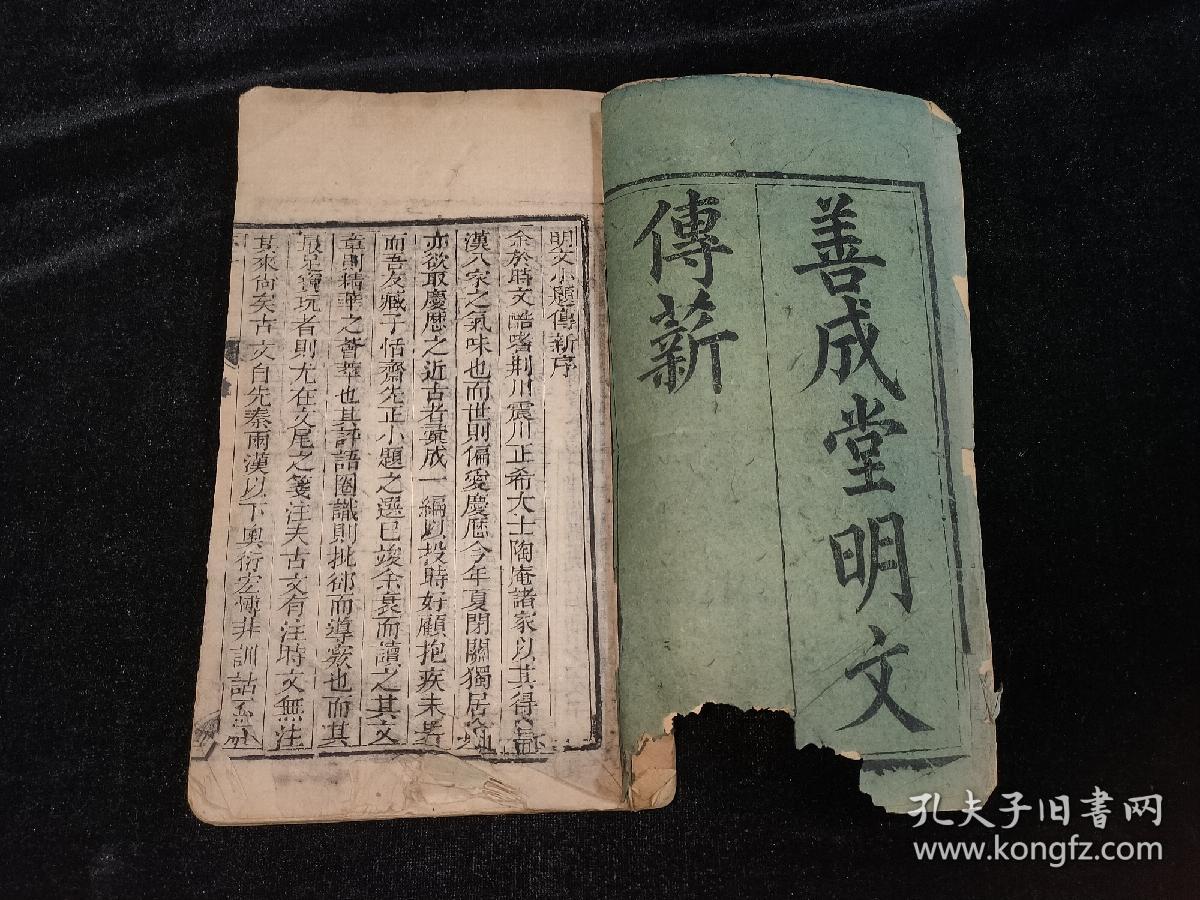 善成堂明文
傳薪
明文小題傳薪序
余於時文酷嗜荆川震川正希大士陶庵諸家以其得
漢八家之氣味也而世則偏愛慶歷今年夏閉關獨居
亦欲取慶歷之近古者彙成一編以投時好顧抱疾未
而吾友臧子恬齋先正小題之選已竣余袠而讀之其文
章則精華之薈萃也其評語圈識則批郤而導窾也而其
最足寶玩者則尤在文尾之箋注夫古文有注時文無注
其來尚矣古文自先秦兩漢以下奧衍宏博非訓詁
孔夫子旧書网
www.kongfz.com